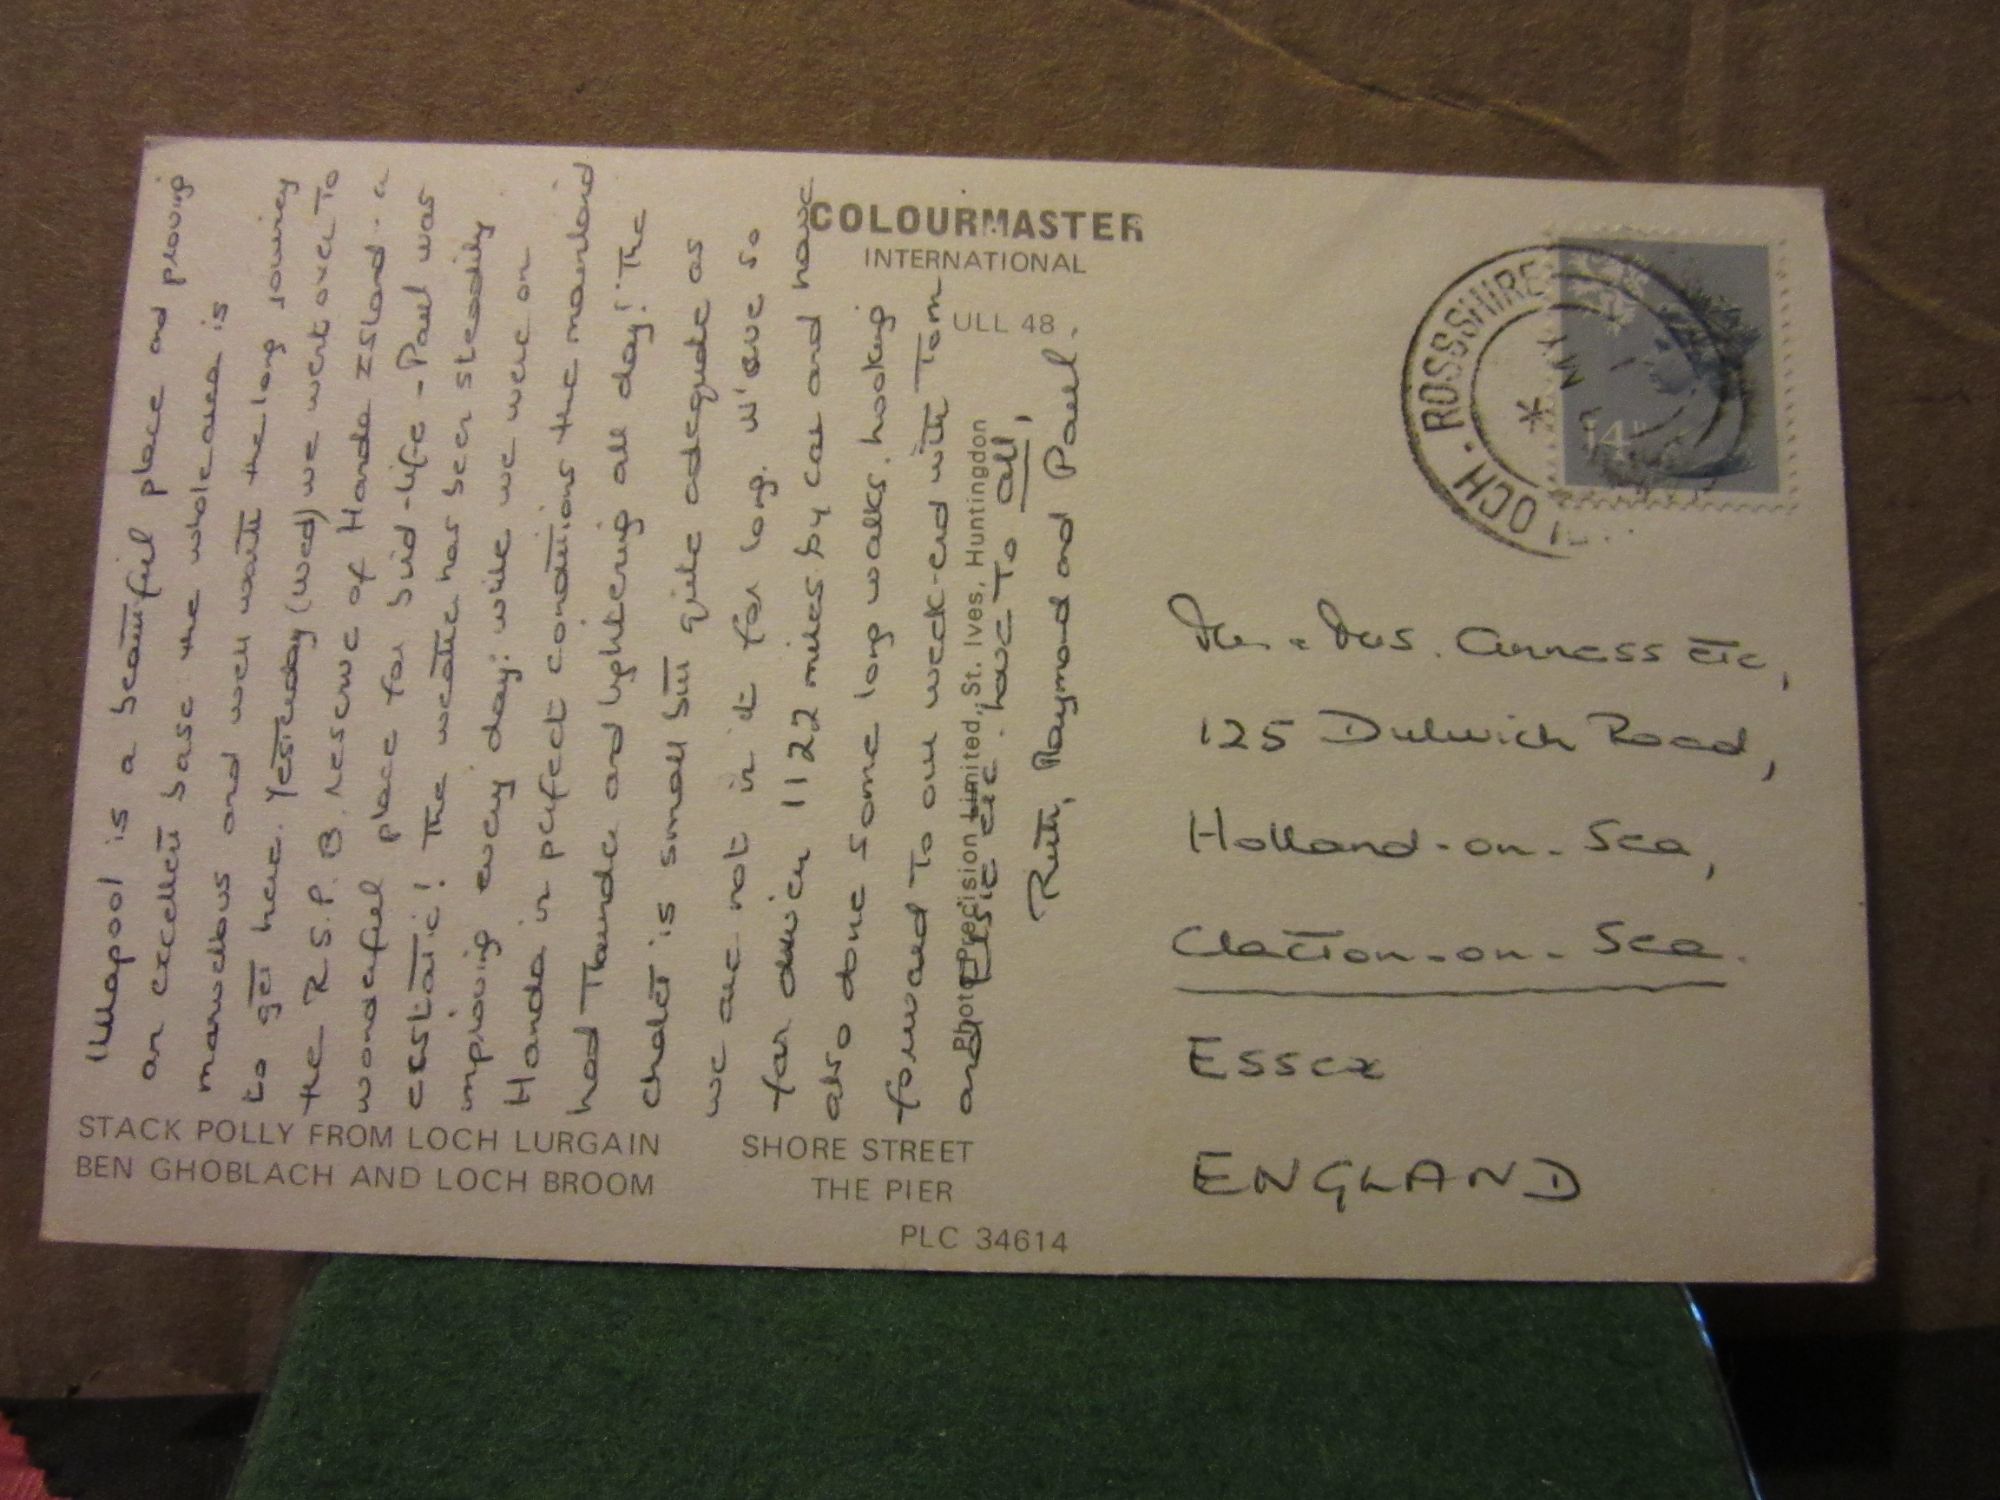 Ullapool is a beautiful place and proving
an excellent base. the whole area is
marvellous and well worth the long journey
to get here. Yesterday (Wed) we went over to
the R.S.P.B. reserve of Handa Island.. a
wonderful place for bird-life - Paul was
ecstatic! The weather has been steadily
improving every day: while we were on
Handa in perfect conditions the mainland
had Thunder and lightening all day! The
chalet is small but quite adequate as
we are not in it for long. We've so
far driven 1122 miles by car and have
also done some long walks. Looking
forward to our week-end with Tom
and Elsie etc. Love to all,
Ruth, Raymond and Paul.
COLOURMASTER
INTERNATIONAL
ULL 48
Photo Precision Limited, St. Ives, Huntingdon
STACK POLLY FROM LOCH LURGAIN
BEN GHOBLACH AND LOCH BROOM
SHORE STREET
THE PIER
PLC 34614
OCH · ROSSSHIRE
MY
14P
Anness Etc,
125 Dulwich Road,
Holland-on-Sea,
Clacton-on-Sea.
Essex
ENGLAND